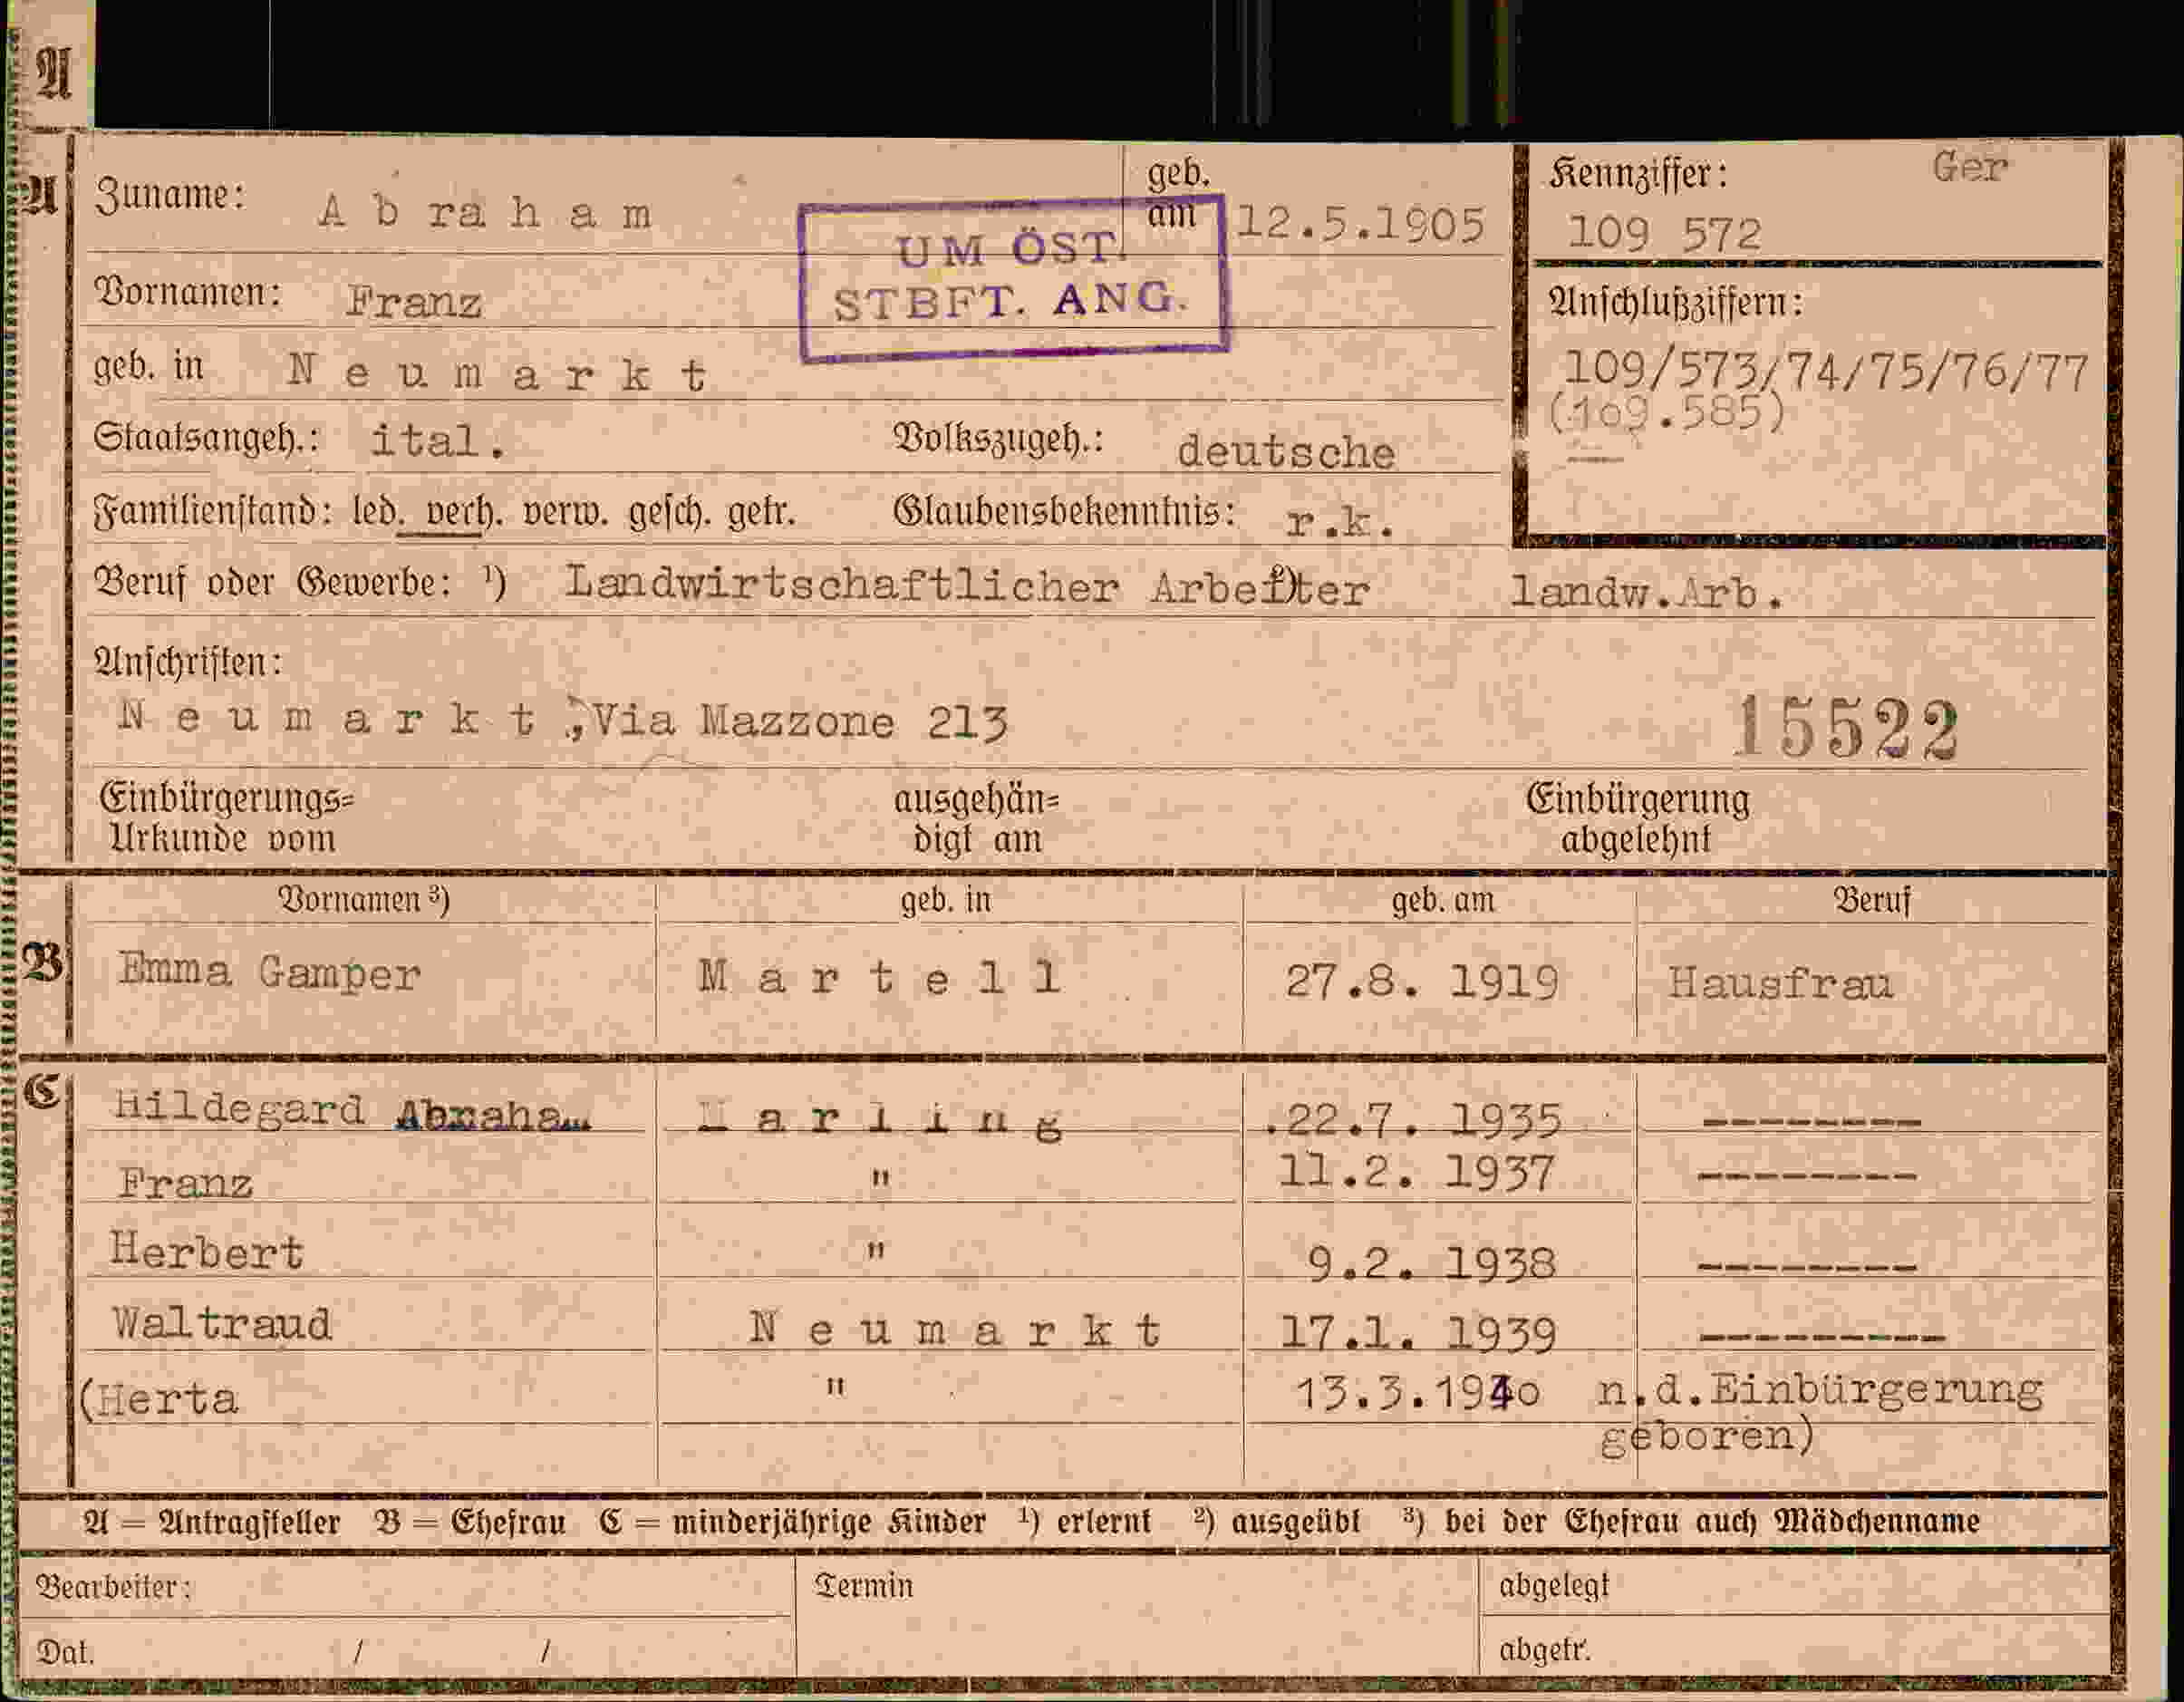 A
A
Zuname: Abraham geb. am 12.5.1905
Kennziffer: Ger
109 572
UM ÖST.
STBFT. ANG.
Vornamen: Franz
Anschlußziffern:
109/573/74/75/76/77
(109.585)
geb. in Neumarkt
Staatsangeh.: ital. Volkszugeh.: deutsche
Familienstand: led. verh. verw. gesch. getr. Glaubensbekenntnis: r.k.
Beruf oder Gewerbe: ¹) Landwirtschaftlicher Arbeiter ²) landw.Arb.
Anschriften:
Neumarkt, Via Mazzone 213
15522
Einbürgerungs= ausgehän= Einbürgerung
Urkunde vom digt am abgelehnt
Vornamen ³) geb. in geb. am Beruf
B Emma Gamper Martell 27.8. 1919 Hausfrau
C Hildegard Abraham Marling .22.7. 1935 --------
Franz " 11.2. 1937 --------
Herbert " 9.2. 1938 --------
Waltraud Neumarkt 17.1. 1939 ---------
(Herta " 13.3.1940 n.d.Einbürgerung
geboren)
A = Antragsteller B = Ehefrau C = minderjährige Kinder ¹) erlernt ²) ausgeübt ³) bei der Ehefrau auch Mädchenname
Bearbeiter: Termin abgelegt
Dat. / / abgetr.